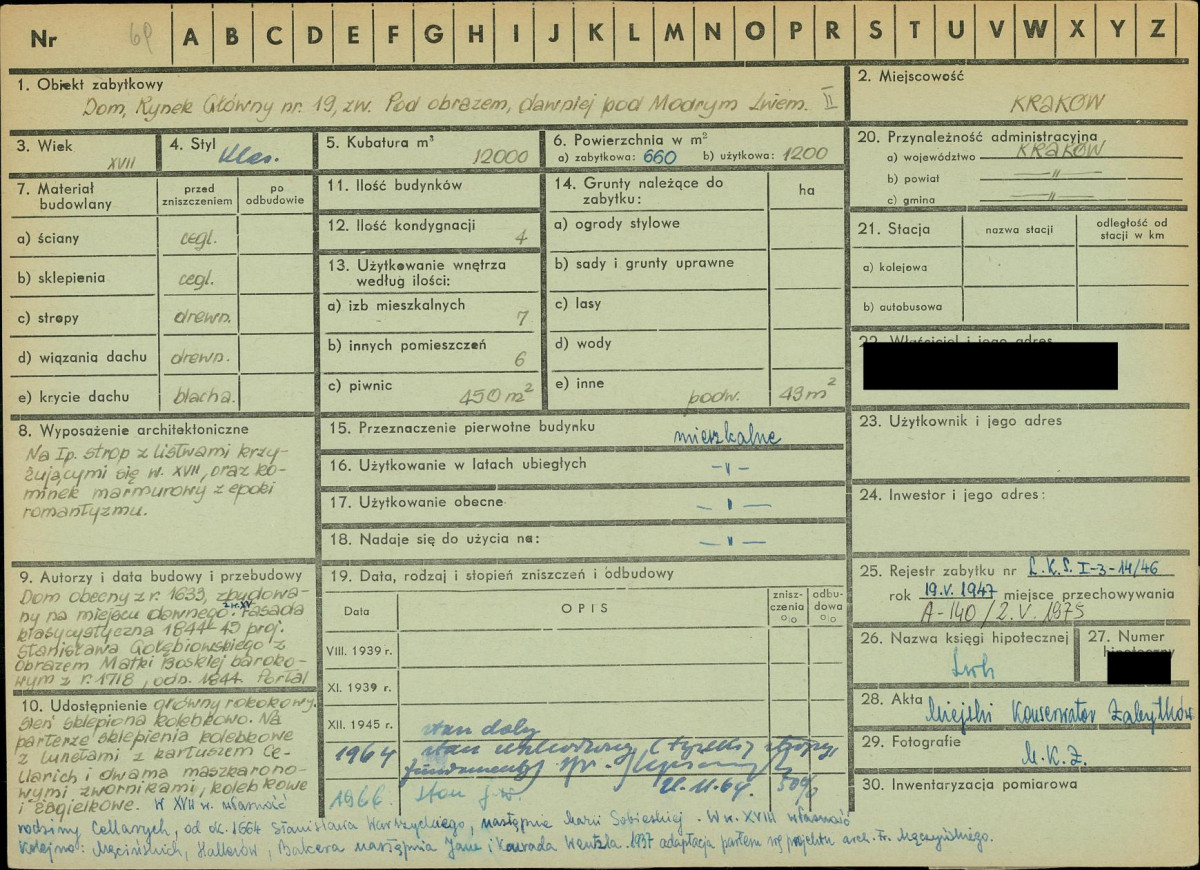 Nr 69 A B C D E F G H I J K L M N O P R S T U V W X Y Z
1. Obiekt zabytkowy
Dom, Rynek Główny nr. 19, zw. Pod obrazem, dawniej pod Modrym Lwem. II
2. Miejscowość
KRAKÓW
3. Wiek
XVII
4. Styl
klas.
5. Kubatura m³
12000
6. Powierzchnia w m²
a) zabytkowa: 660 b) użytkowa: 1200
20. Przynależność administracyjna
a) województwo KRAKÓW
b) powiat —"—
c) gmina —"—
7. Materiał budowlany
przed zniszczeniem
po odbudowie
a) ściany cegl.
b) sklepienia cegl.
c) stropy drewn.
d) wiązania dachu drewn.
e) krycie dachu blacha.
11. Ilość budynków
12. Ilość kondygnacji 4
13. Użytkowanie wnętrza
według ilości:
a) izb mieszkalnych 7
b) innych pomieszczeń 6
c) piwnic 450 m²
14. Grunty należące do
zabytku:
ha
a) ogrody stylowe
b) sady i grunty uprawne
c) lasy
d) wody
e) inne podw. 49 m²
21. Stacja
nazwa stacji
odległość od
stacji w km
a) kolejowa
b) autobusowa
22. Właściciel i jego adres
8. Wyposażenie architektoniczne
Na Ip. strop z listwami krzy-
żującymi się w. XVII, oraz ko-
minek marmurowy z epoki
romantyzmu.
15. Przeznaczenie pierwotne budynku mieszkalne
16. Użytkowanie w latach ubiegłych -"-
17. Użytkowanie obecne -"-
18. Nadaje się do użycia na: -"-
23. Użytkownik i jego adres
24. Inwestor i jego adres:
9. Autorzy i data budowy i przebudowy
Dom obecny z r. 1633, zbudowa-
ny na miejscu dawnego z w. XV. Fasada
klasycystyczna 1844-45 proj.
Stanisława Gołębiowskiego z
obrazem Matki Boskiej baroko-
wym z r. 1718, odn. 1844. Portal
10. Udostępnienie główny rokokowy.
Sień sklepiona kolebkowo. Na
parterze sklepienia kolebkowe
z lunetami z kartuszem Ce-
llarich i dwama maszkarono-
wymi zwornikami, kolebkowe
i żagielkowe. W XVII w. własność
rodziny Cellarych, od ok. 1664 Stanisława Warszyckiego, następnie Marii Sobieskiej. W w. XVIII własność
kolejno: Męcińskich, Hallerów, Balcera następnia Jana i Konrada Wentzla. 1937 adaptacja parteru wg projektu arch. Fr. Mączyńskiego.
19. Data, rodzaj i stopień zniszczeń i odbudowy
Data
OPIS
znisz-
czenia
%
odbu-
dowa
%
VIII. 1939 r.
XI. 1939 r.
XII. 1945 r. stan doby
1964 stan uszkodzony, (tynki, stropy,
fundamenty) spr.
21.11.64. 50%
1966 Stan j.w.
25. Rejestr zabytku nr L.K.S. I-3-14/46
rok 19.V.1947 miejsce przechowywania
A-140 / 2.V.1975
26. Nazwa księgi hipotecznej
Lwh
27. Numer
hipoteczny
28. Akta
Miejski Konserwator Zabytków
29. Fotografie
M.K.Z.
30. Inwentaryzacja pomiarowa